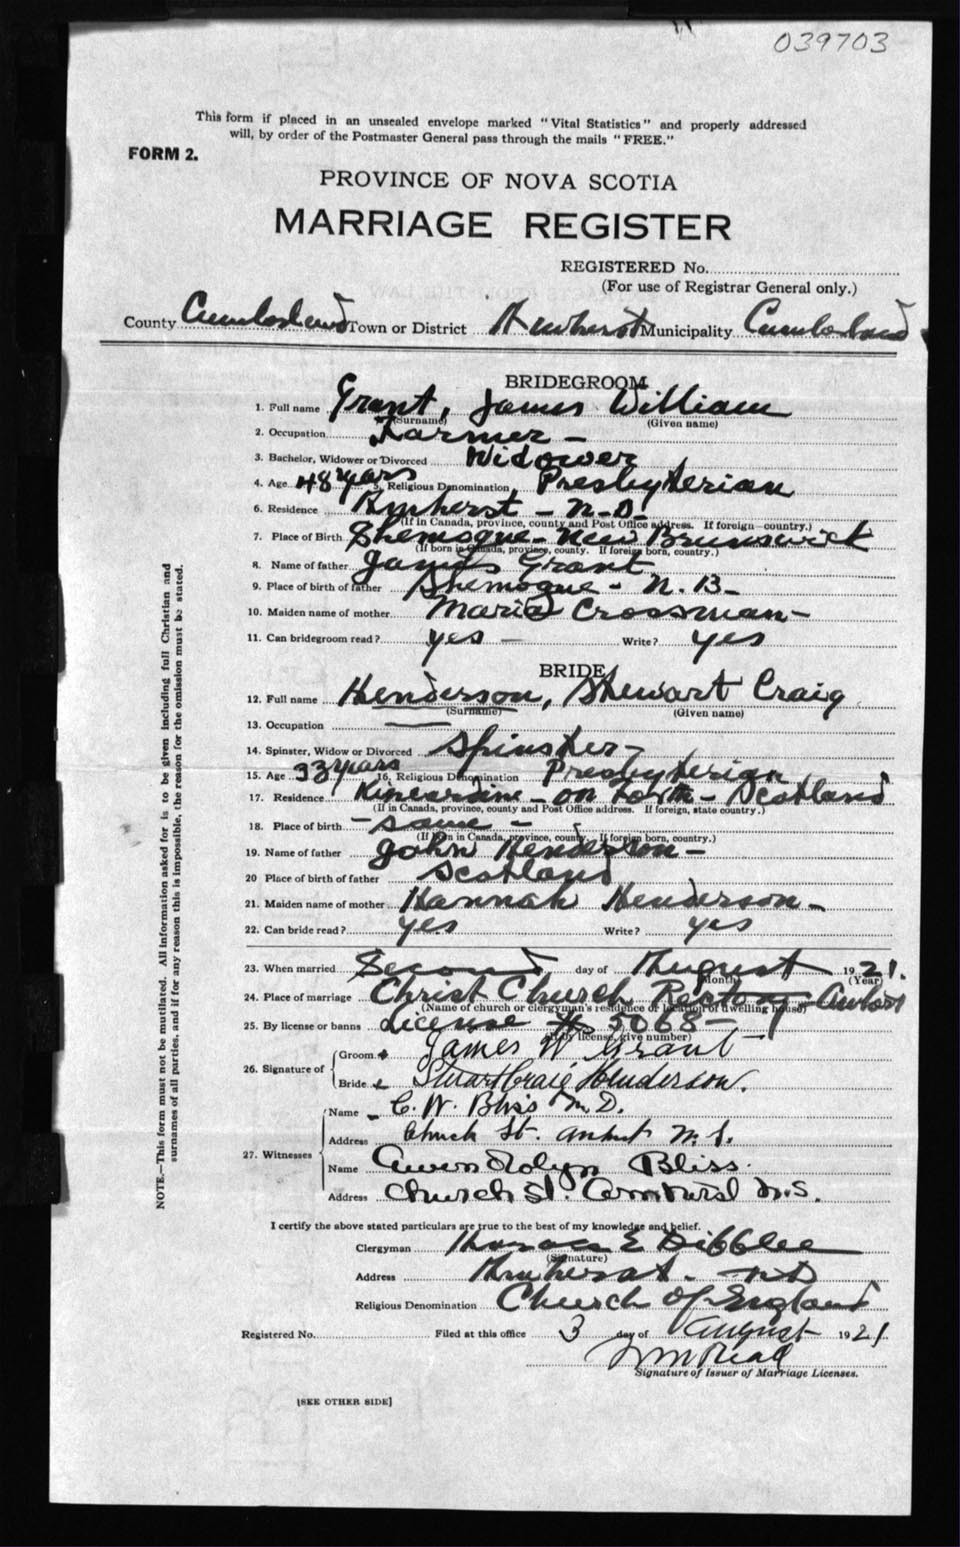 039703
This form if placed in an unsealed envelope marked "Vital Statistics" and properly addressed
will, by order of the Postmaster General pass through the mails "FREE."
FORM 2.
PROVINCE OF NOVA SCOTIA
MARRIAGE REGISTER
REGISTERED No.
(For use of Registrar General only.)
County Cumberland Town or District Amherst Municipality Cumberland
BRIDEGROOM
1. Full name Grant, James William
(Surname) (Given name)
2. Occupation Farmer -
3. Bachelor, Widower or Divorced Widower
4. Age 48 years 5. Religious Denomination Presbyterian
6. Residence Amherst - N.S.
(If in Canada, province, county and Post Office address. If foreign—country.)
7. Place of Birth Shemogue - New Brunswick
(If born in Canada, province, county. If foreign born, country.)
8. Name of father James Grant
9. Place of birth of father Shemogue - N. B -
10. Maiden name of mother Maria Crossman -
11. Can bridegroom read? yes - Write? yes
BRIDE
12. Full name Henderson, Stewart Craig
(Surname) (Given name)
13. Occupation
14. Spinster, Widow or Divorced Spinster -
15. Age 33 years 16. Religious Denomination Presbyterian
17. Residence Kincardine - on Forth - Scotland
(If in Canada, province, county and Post Office address. If foreign, state country.)
18. Place of birth - same -
(If born in Canada, province, county. If foreign born, country.)
19. Name of father John Henderson -
20 Place of birth of father Scotland
21. Maiden name of mother Hannah Henderson -
22. Can bride read? yes Write? yes
23. When married Second day of August 1921.
(Month) (Year)
24. Place of marriage Christ Church Rectory - Amherst
(Name of church or clergyman's residence or location of dwelling house)
25. By license or banns License # 5068 -
(If by license, give number)
26. Signature of
Groom James W Grant
Bride Stuart Craig Henderson.
27. Witnesses
Name C. W. Bliss M. D.
Address Church St. Amherst N. S.
Name Gwendolyn Bliss.
Address Church St. Amherst N.S.
I certify the above stated particulars are true to the best of my knowledge and belief.
Clergyman Horace E Dibblee
(Signature)
Address Amherst - N S
Religious Denomination Church of England
Registered No. Filed at this office 3 day of August 1921
Signature of Issuer of Marriage Licenses.
[SEE OTHER SIDE]
NOTE.—This form must not be mutilated. All information asked for is to be given including full Christian and
surnames of all parties, and if for any reason this is impossible, the reason for the omission must be stated.